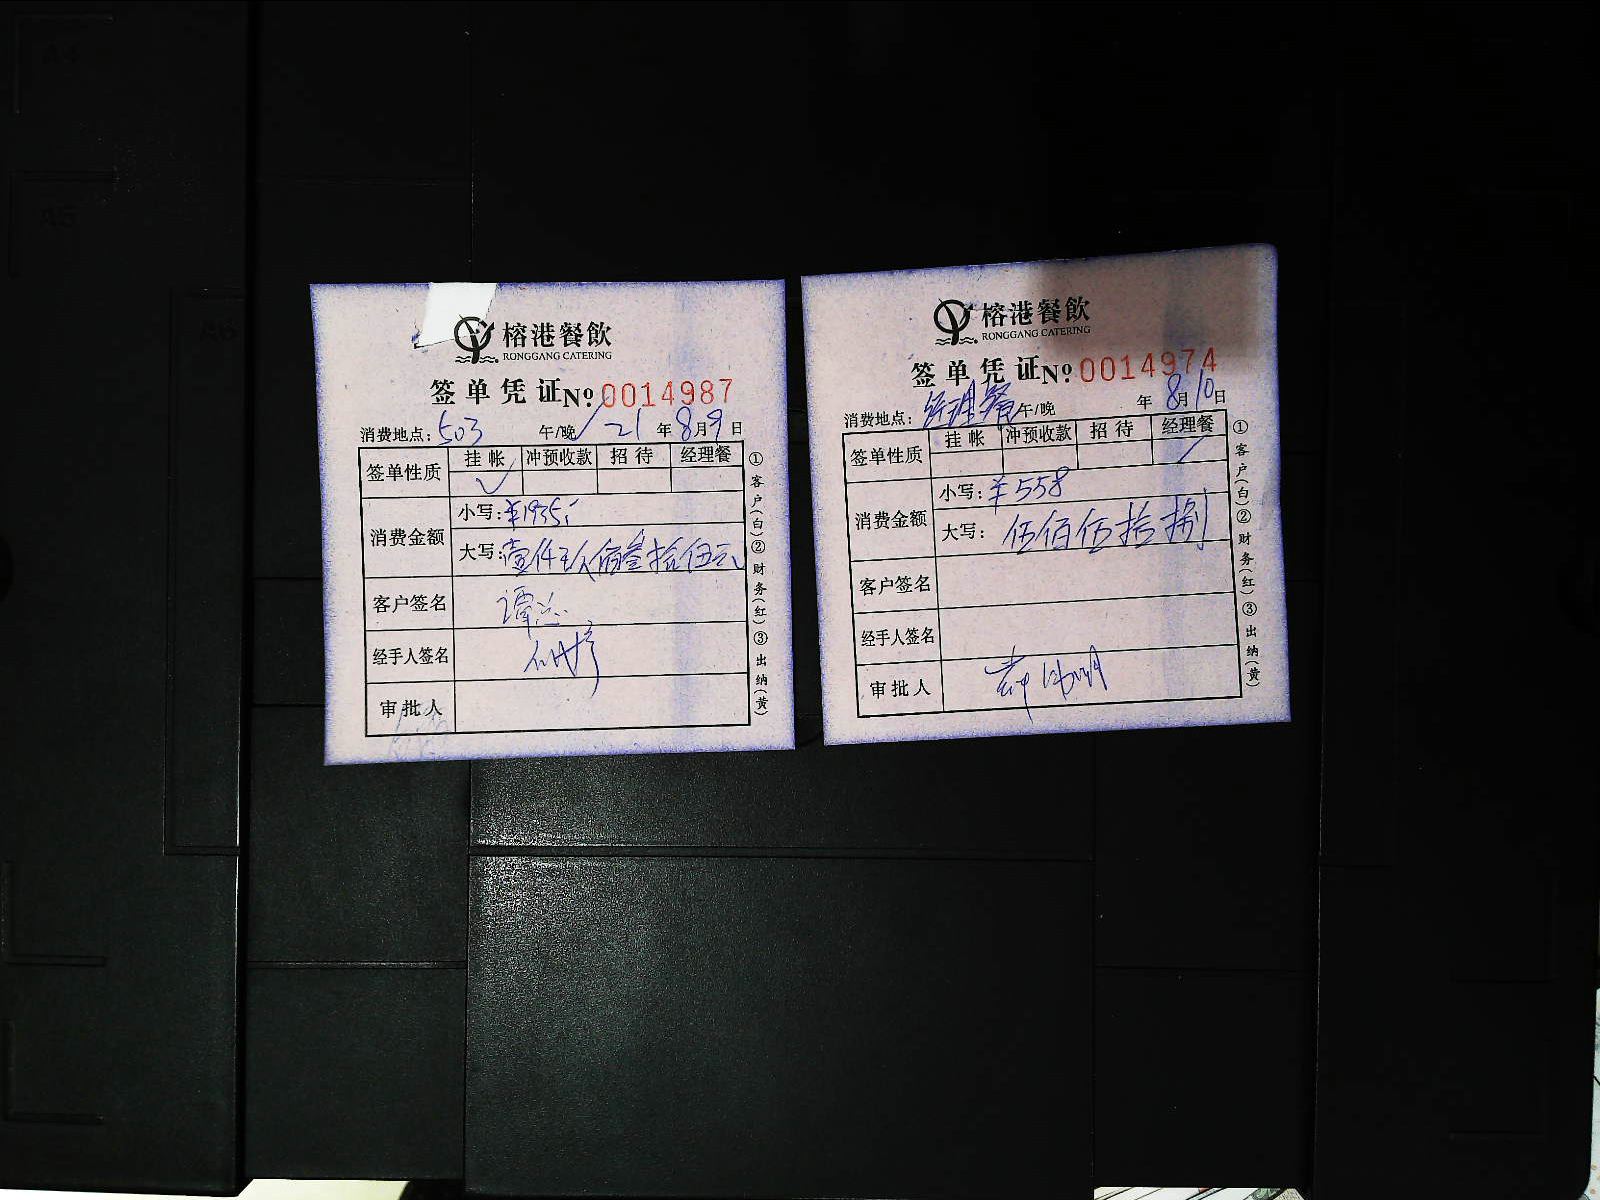 榕港餐飲
RONGGANG CATERING
签单凭证 No: 0014987
消费地点: 503 午/晚 ✓ 21 年 8 月 9 日
签单性质 挂帐 冲预收款 招待 经理餐
✓
消费金额 小写: ¥1935
大写: 壹仟玖佰叁拾伍元
客户签名 谭总
经手人签名
审批人
①客户(白)②财务(红)③出纳(黄)
榕港餐飲
RONGGANG CATERING
签单凭证 No: 0014974
消费地点: 经理餐 午/晚 年 8 月 10 日
签单性质 挂帐 冲预收款 招待 经理餐
消费金额 小写: ¥558
大写: 伍佰伍拾捌
客户签名
经手人签名
审批人
①客户(白)②财务(红)③出纳(黄)
A4
A5
A6